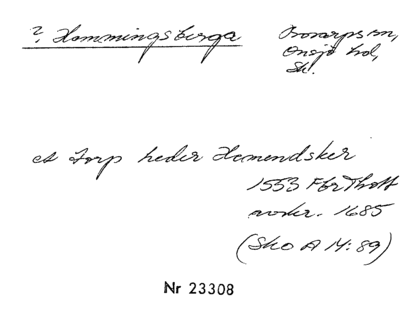 ? Hemmingsberga Bosarps sn,
Onsjö hd,
Sk.
et Torp heder Hemendsker
1553 FbrThott
avskr. 1685
(Sko A IV: 89)
Nr 23308